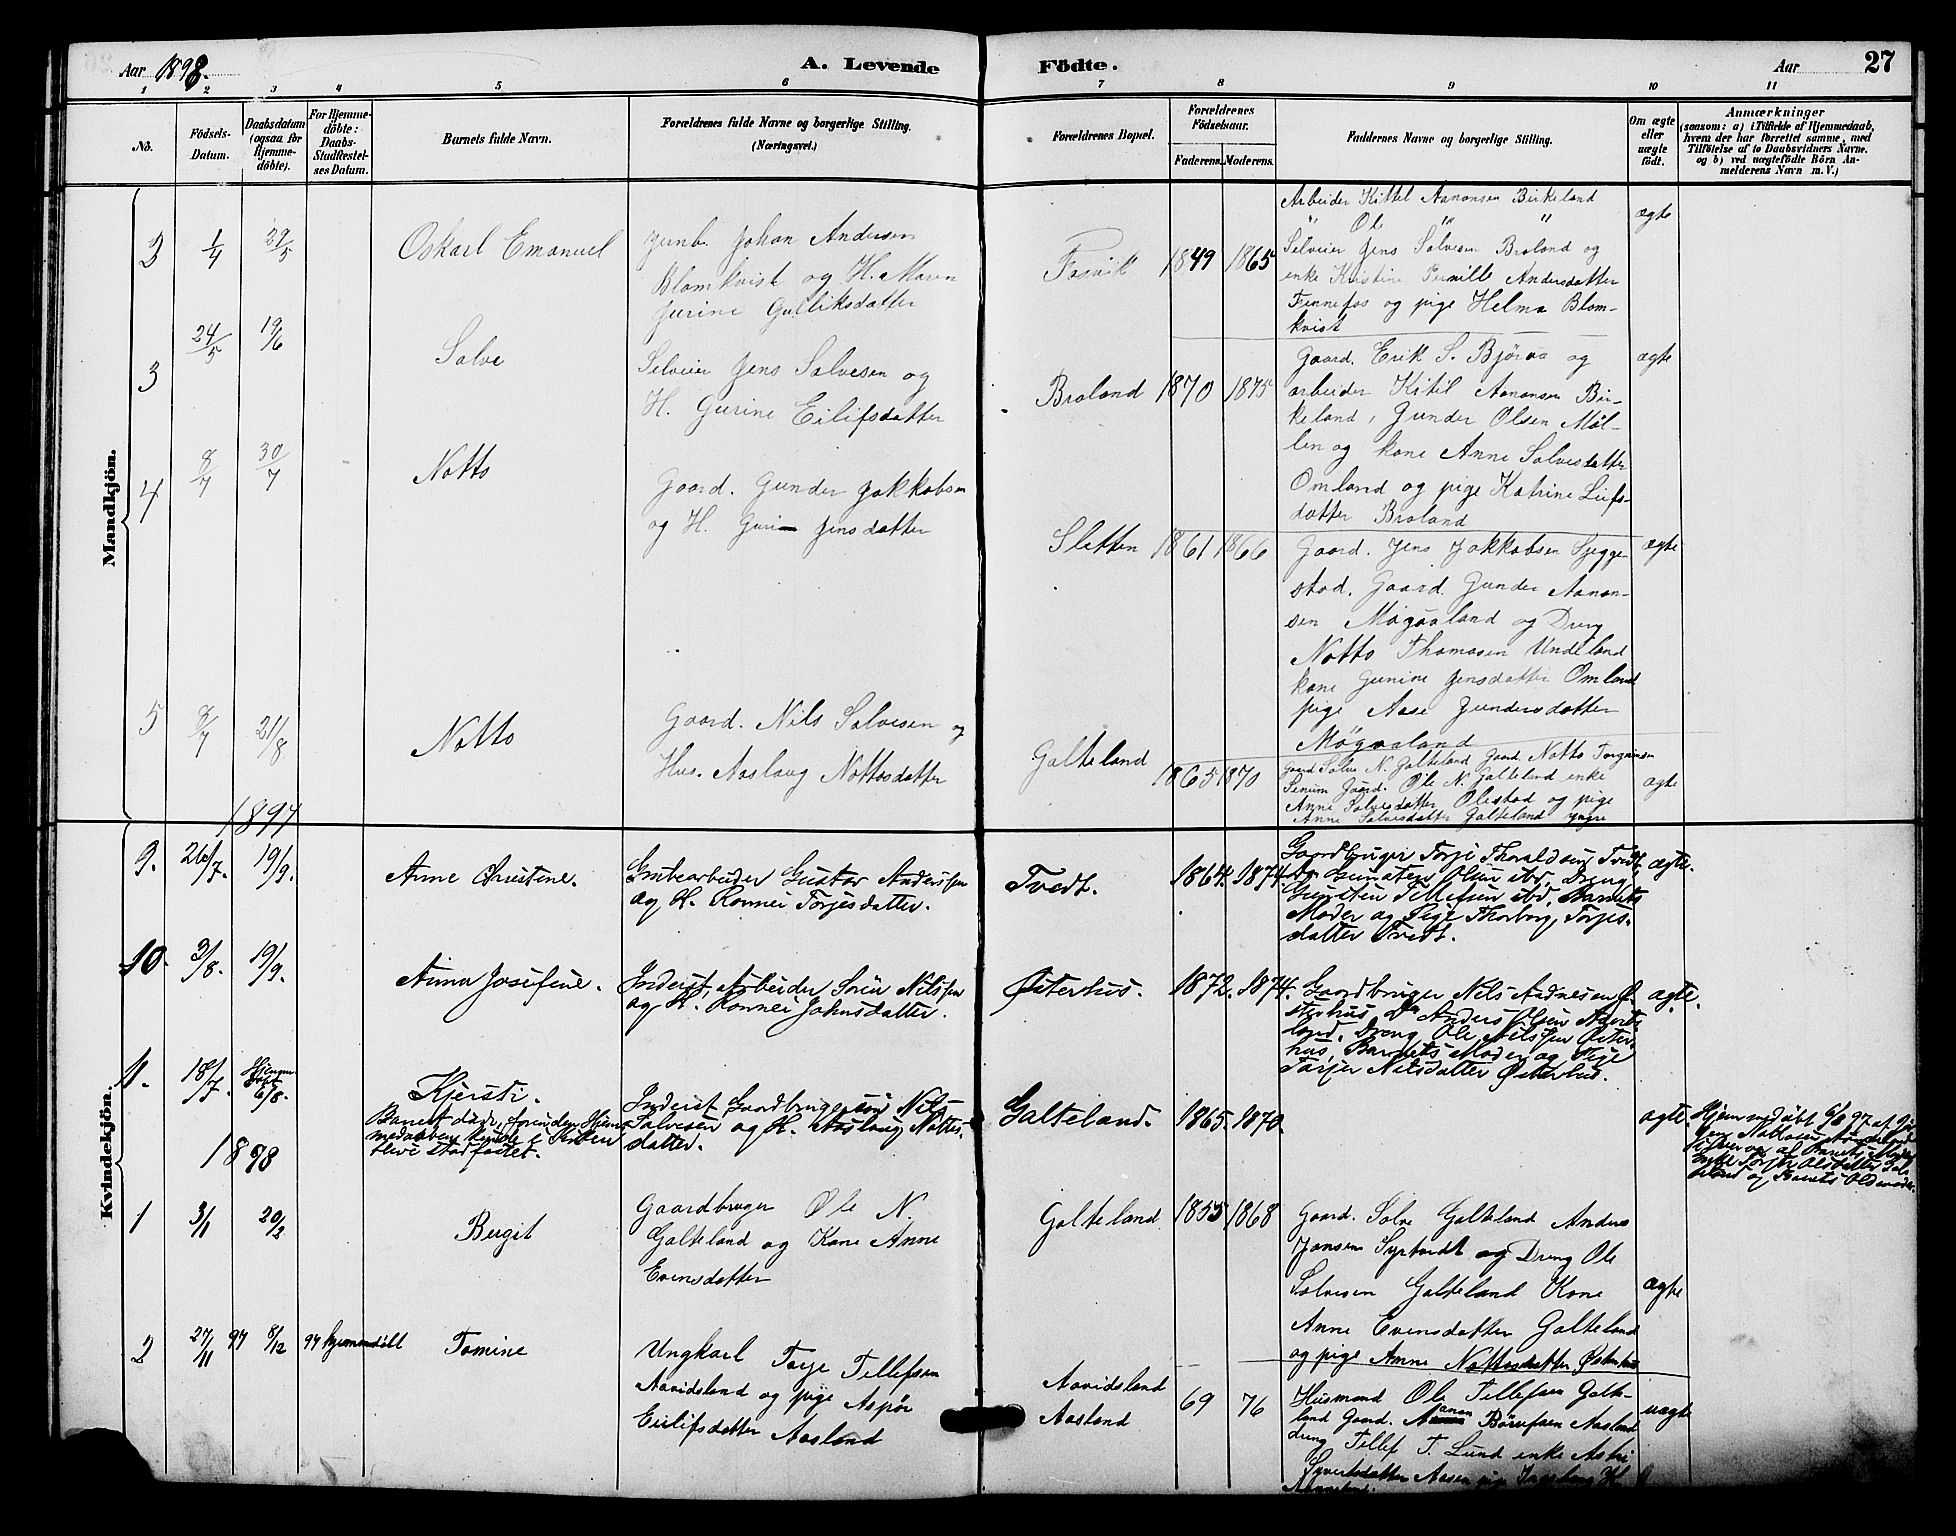 Aar 1898.
A. Levende
Födte.
Aar
27
1
2
3
4
5
6
7
8
9
10
11
No.
Födsels-
Datum.
Daabsdatum
(ogsaa for
Hjemme-
döbte).
For Hjemme-
döbte:
Daabs-
Stadfæstel-
ses Datum.
Barnets fulde Navn.
Forældrenes fulde Navne og borgerlige Stilling.
(Næringsvei.)
Forældrenes Bopæl.
Forældrenes
Födselsaar.
Faderens.
Moderens.
Faddernes Navne og borgerlige Stilling.
Om ægte
eller
uægte
født.
Anmærkninger
(saasom: a) i Tilfælde af Hjemmedaab,
hvem der har forrettet samme, med
Tilföielse af to Daabsvidners Navne.
og b) ved uægtefödte Börn An-
melderens Navn m. V.)
Mandkjön.
3
1/4
29/5
Oskarl Emanuel
Jernb. Johan Andersen
Blomkvist og H. Maren
Jurine Gulliksdatter
1849
1865
Arbeider Kittel Aanonsen Birkeland
" Ole " "
Selveier Jens Salvesen Broland og
enke Kristine Pernille Andersdatter
Fennefos og pige Helma Blom-
kvist
ægte
3
24/5
19/6
Salve
Selveier Jens Salvesen og
H. Gurine Eilifsdatter
Broland
1870
1875
Gaard. Erik S. Björaa og
arbeider Kitil Aanonsen Bir-
keland, Gunder Olsen Möl-
len og kone Anne Salvesdatter
Omland og pige Katrine Leifs-
datter Broland
ægte
4
8/7
30/7
Notto
Gaard. Gunder Jakkobsen
og H. Guri Jensdatter
Sletten
1861
1866
Gaard. Jens Jakkobsen
Gaard Gunder Aanon-
sen Mögaaland og Dreng
Notto Thomasen Undeland
kone Gunine Jensdatter Omland
pige Aase Gundersdatter
Mögaaland
ægte
5
8/7
21/8
Notto
Gaard. Nils Salvesen og
Hus. Aaslaug Nottosdatter
Galteland
1865
1870
Gaard Salve N. Galteland Gaard Notto
Senum Gaard. Ole N. Galteland enke
Anne Salvesdatter Ølestad og pige
Anne Salvesdatter Galteland yngre
ægte
Kvindekjön.
1897
9.
26/7.
19/9.
Anne Christine.
Grubearbeider Gustav Anderssen
og H. Ronnei Torjesdatter.
Tvedt.
1864.
1874.
Gaardbruger Torje Thoraldsen Tvedt,
Do Gunsten Olsen ibd, Dreng
Gunsten Tellefsen ibd, Barnets
Moder og Pige Thorborg Torjes-
datter Tvedt.
ægte.
10.
3/8.
19/9.
Anna Josefine.
Inderst, Arbeider Sören Nilssen
og H. Ronnei Johnsdatter.
Østerhus.
1872.
1874.
Gaardbruger Nils Aadnesen Ø-
sterhus Do Anders Olsen
land, Dreng Ole Nilssen Øster-
hus, Barnets Moder og Pige
Torjer Nilsdatter Østerhus.
ægte.
11.
18/7.
Hjemme-
döbt
6/8.
Kjersti.
Barnet døde, førend en Hjem-
medaaben kunde i Kirken
blive stadfæstet.
Inderst Gaardbrugersøn Nils
Salvesen og H. Aaslaug Nottos-
datter.
Galteland.
1865.
1870.
ægte.
Hjemmedøbt 6/8 97 af
1898
1
3/1
20/2
Birgit
Gaardbruger Ole N.
Galteland og Kone Anne
Evensdatter
Galteland
1855
1868
Gaard. Salve Galteland Anders
Jansen Syrtveidt og Dreng Ole
Salvesen Galteland Kone
Anne Evensdatter Galteland
og pige Anne Nottosdatter Østerhus
ægte
2
27/11 97
8/12 97
hjemmedöbt
Tomine
Ungkarl Torje Tellefsen
Aavidsland og pige Aspör
Eilifsdatter Aasland
Aavidsland
Aasland
69
76
Husmand Ole Tellefsen Galte-
land Gaard. Aanon Börufsen Aasland
dreng Tellef T. Lund enke Astri
Syvertsdatter Aasen pige Ingeborg H.
uægte